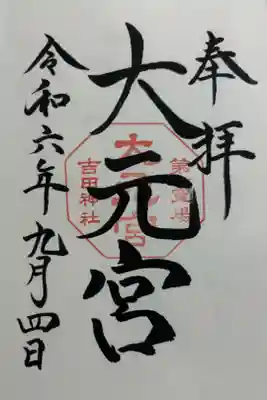 奉拝
大元宮
第一霊場
大元宮
吉田神社
令和六年九月四日